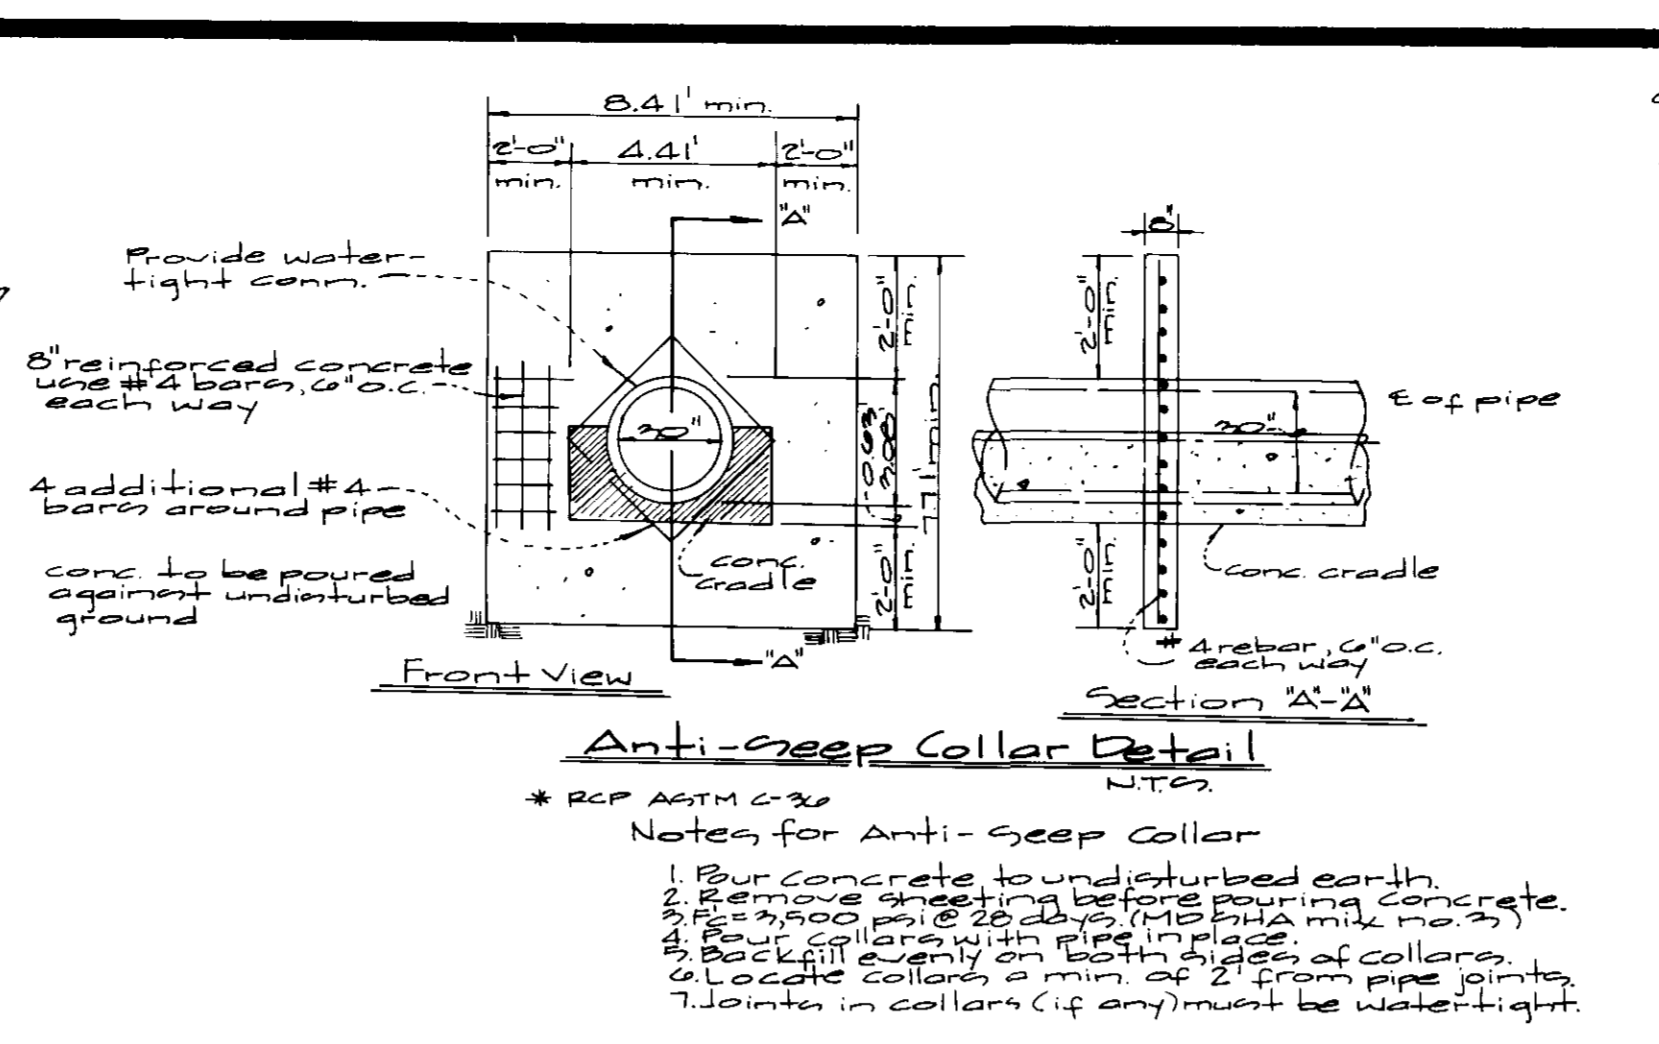 8.41' min.
2'-0" 4.41' 2'-0"
min. min. min.
"A"
Provide water-
tight conn.
8" reinforced concrete
use #4 bars, 6" o.c.
each way
4 additional #4
bars around pipe
conc. to be poured
against undisturbed
ground
30"
conc.
cradle
2'-0"
min.
0.63'
3.08'
2'-0"
min.
7.71' min.
"A"
Front View
8"
2'-0"
min.
℄ of pipe
30"
2'-0"
min.
conc. cradle
#4 rebar, 6" o.c.
each way
Section "A"-"A"
Anti-Seep Collar Detail
N.T.S.
* RCP ASTM
Notes for Anti-Seep Collar
1. Pour concrete to undisturbed earth.
2. Remove sheeting before pouring concrete.
3. F'c = 3,500 psi @ 28 days. (MD SHA mix no. 3)
4. Pour collars with pipe in place.
5. Backfill evenly on both sides of collars.
6. Locate collars a min. of 2' from pipe joints.
7. Joints in collars (if any) must be watertight.